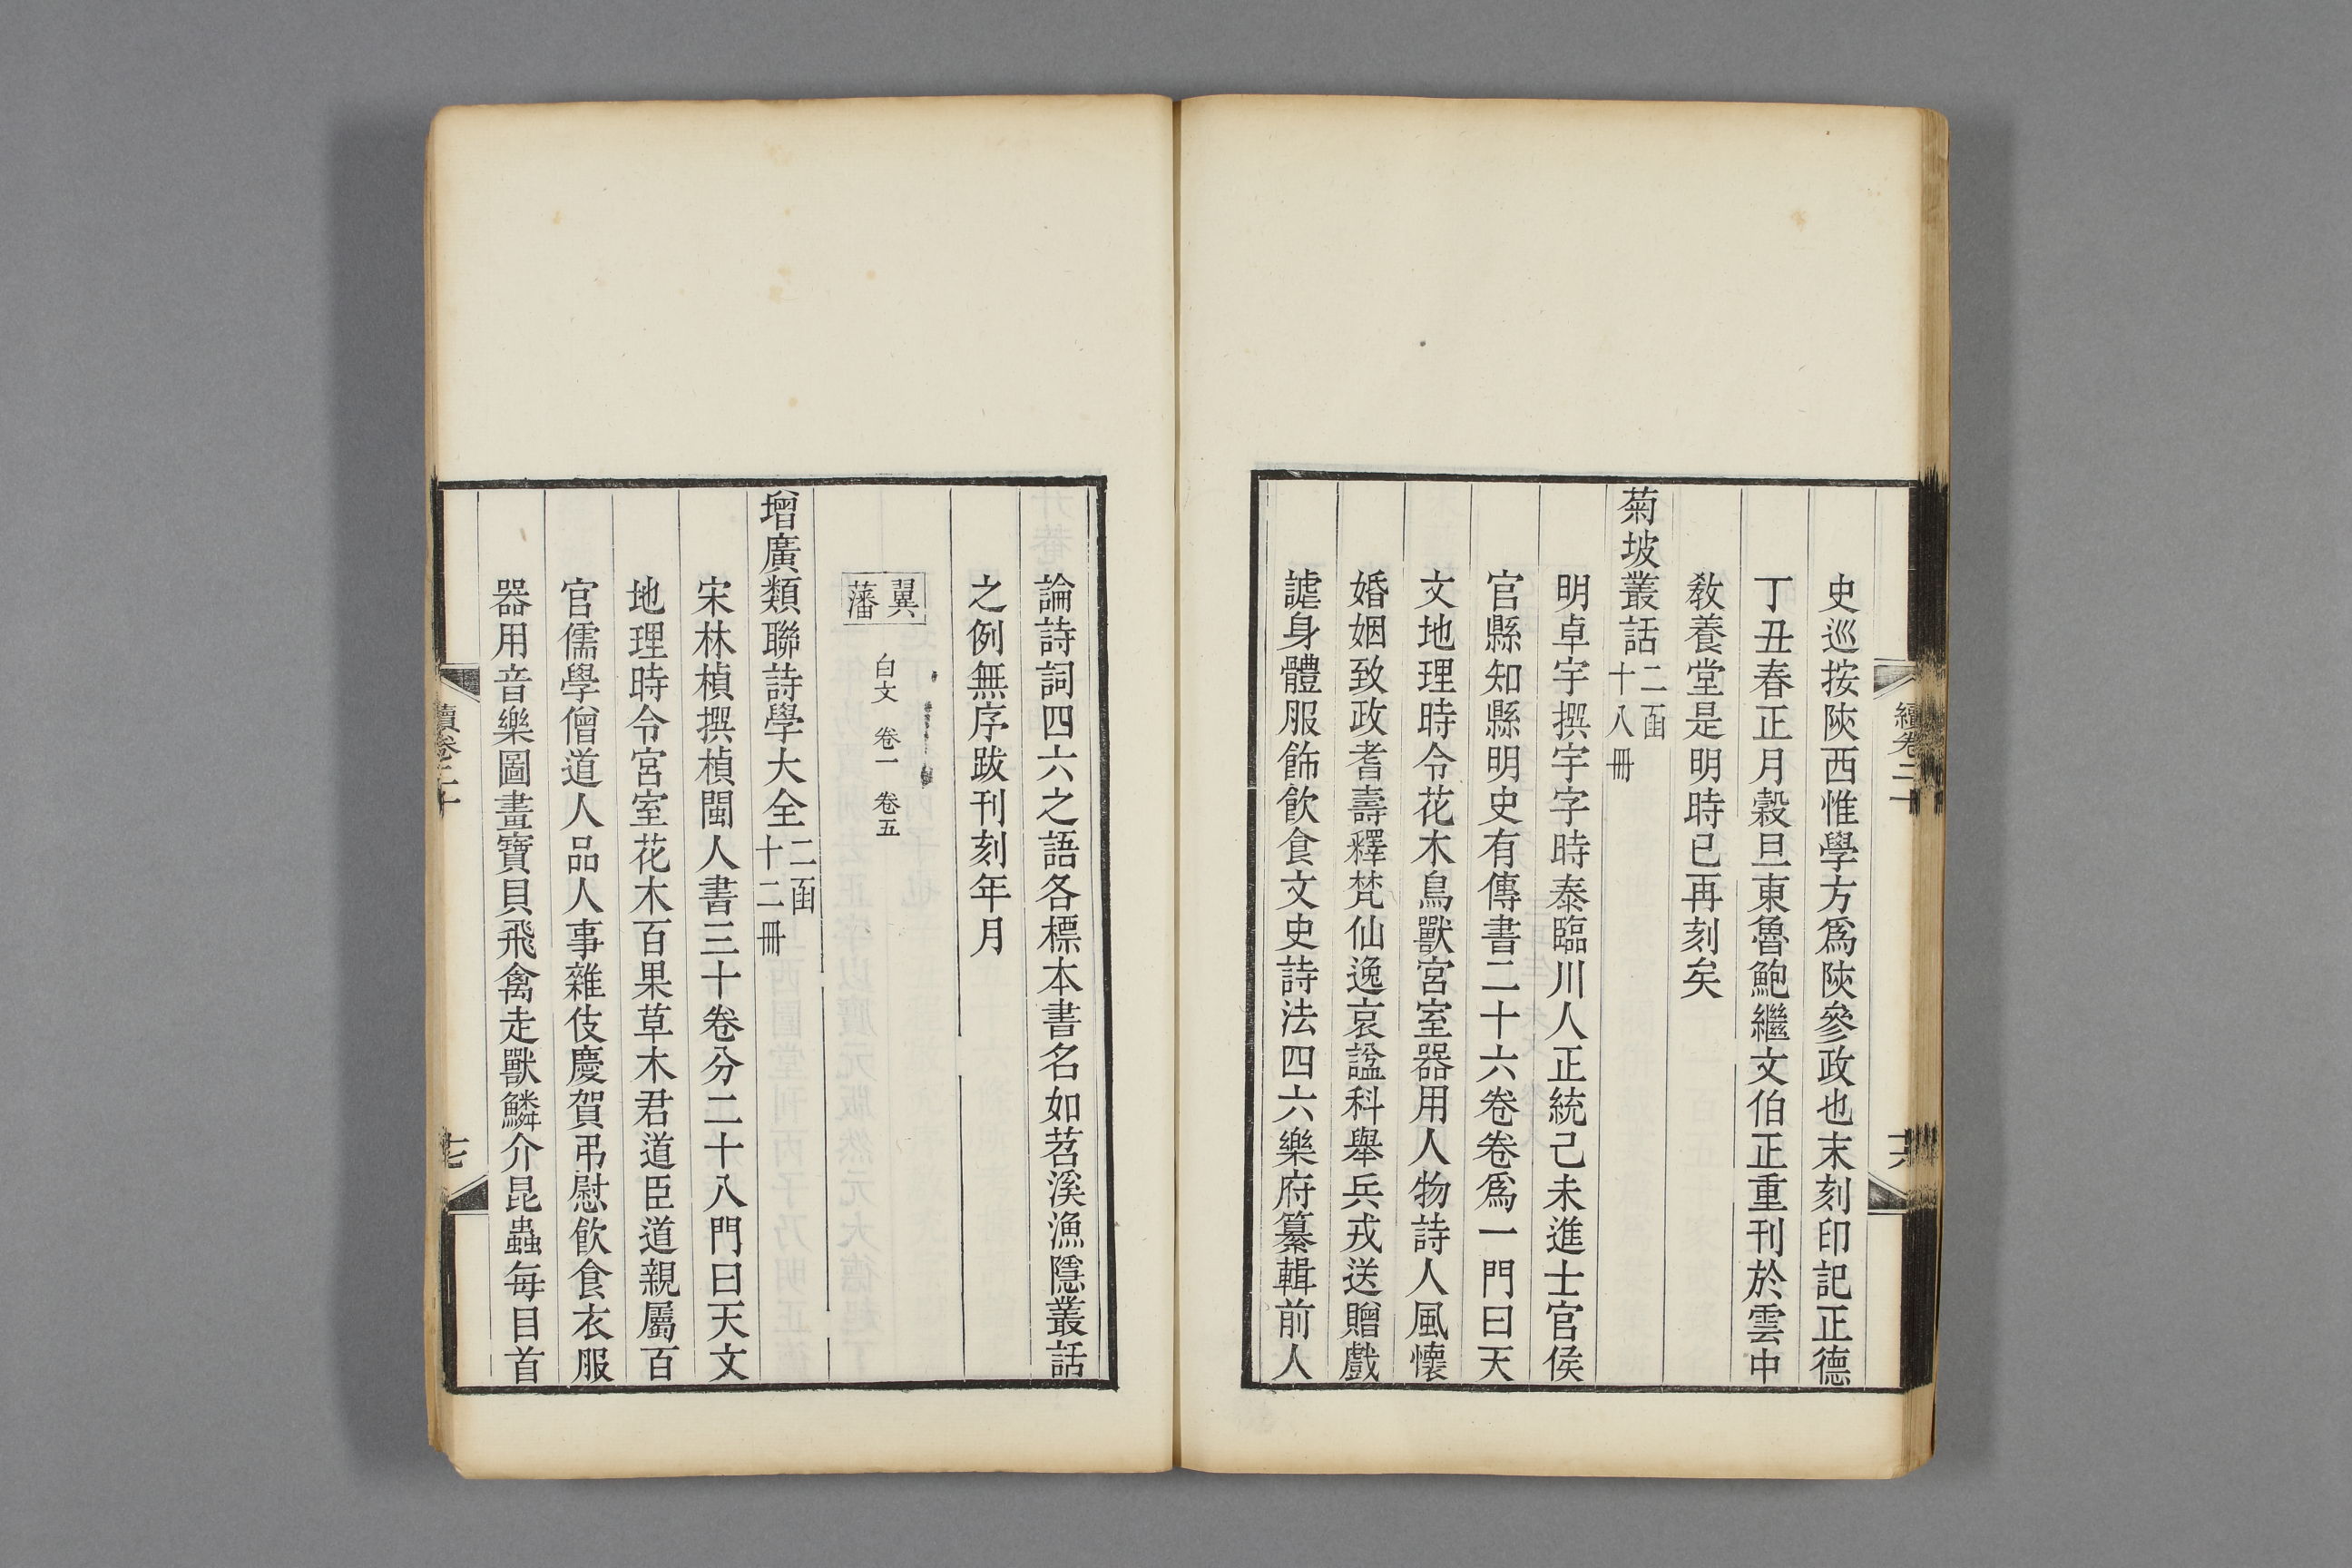 史巡按陝西惟學方爲陝參政也末刻印記正德
丁丑春正月穀旦東魯鮑繼文伯正重刊於雲中
敎養堂是明時已再刻矣
菊坡叢話二函十八冊
明卓宇撰宇字時泰臨川人正統己未進士官侯
官縣知縣明史有傳書二十六卷卷爲一門曰天
文地理時令花木鳥獸宮室器用人物詩人風懷
婚姻致政耆壽釋梵仙逸哀諡科舉兵戎送贈戲
謔身體服飾飮食文史詩法四六樂府纂輯前人
續卷二十
十六
論詩詞四六之語各標本書名如苕溪漁隱叢話
之例無序跋刊刻年月
翼藩
白文 卷一 卷五
增廣類聯詩學大全二函十二冊
宋林楨撰楨閩人書三十卷分二十八門曰天文
地理時令宮室花木百果草木君道臣道親屬百
官儒學僧道人品人事雜伎慶賀弔慰飮食衣服
器用音樂圖畫寶貝飛禽走獸鱗介昆蟲每目首
續卷二十
十七